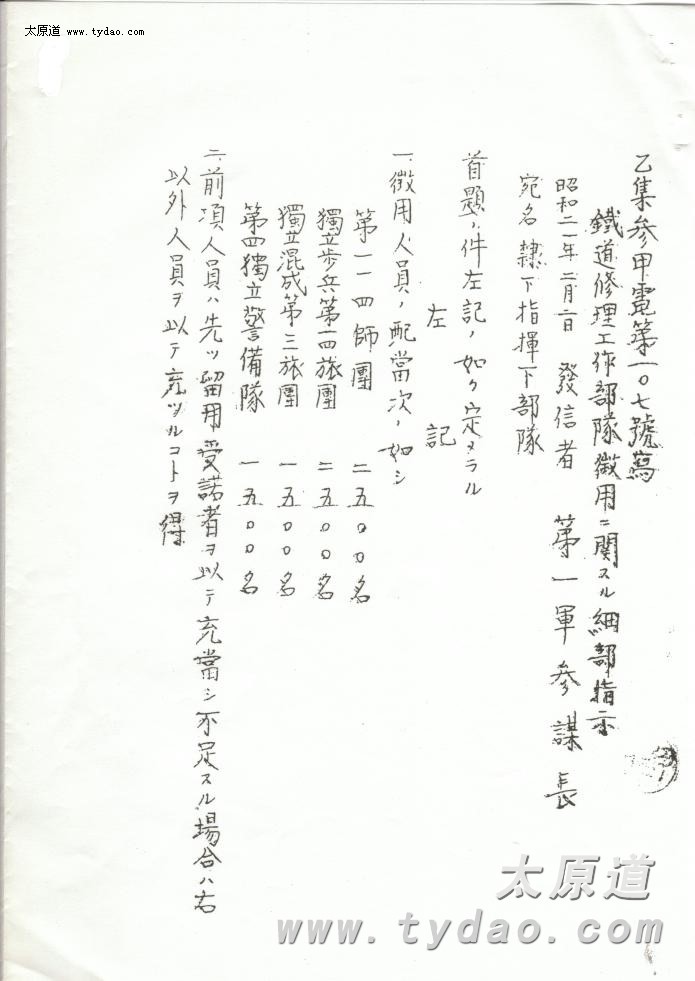 太原道 www.tydao.com
乙集参甲電第一〇七號寫
鐵道修理工作部隊徴用ニ関スル細部指示
昭和二一年二月二日 發信者 第一軍参謀長
宛名 隷下指揮下部隊
首題ノ件左記ノ如ク定メラル
左記
一、徴用人員ノ配當次ノ如シ
第一一四師團 二五〇〇名
獨立歩兵第一四旅團 二五〇〇名
獨立混成第三旅團 一五〇〇名
第四獨立警備隊 一五〇〇名
二、前項人員ハ先ヅ留用受諾者ヲ以テ充當シ不足スル場合ハ右
以外人員ヲ以テ充ツルコトヲ得
太原道
www.tydao.com